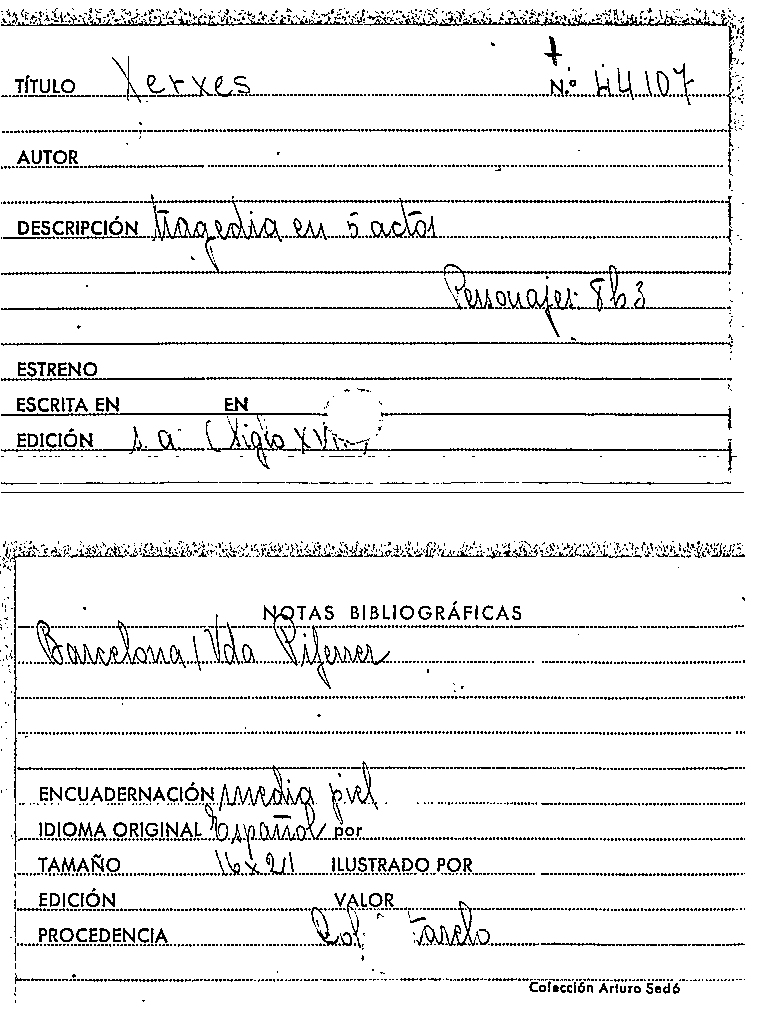 TÍTULO Xerxes N.º 44107
AUTOR
DESCRIPCIÓN tragedia en 5 actos
Personajes 8h3
ESTRENO
ESCRITA EN EN
EDICIÓN s. a. (Siglo
NOTAS BIBLIOGRÁFICAS
Barcelona / Vda Piferrer
ENCUADERNACIÓN media piel
IDIOMA ORIGINAL Español por
TAMAÑO 16x21 ILUSTRADO POR
EDICIÓN VALOR
PROCEDENCIA Col.
Colección Arturo Sedó